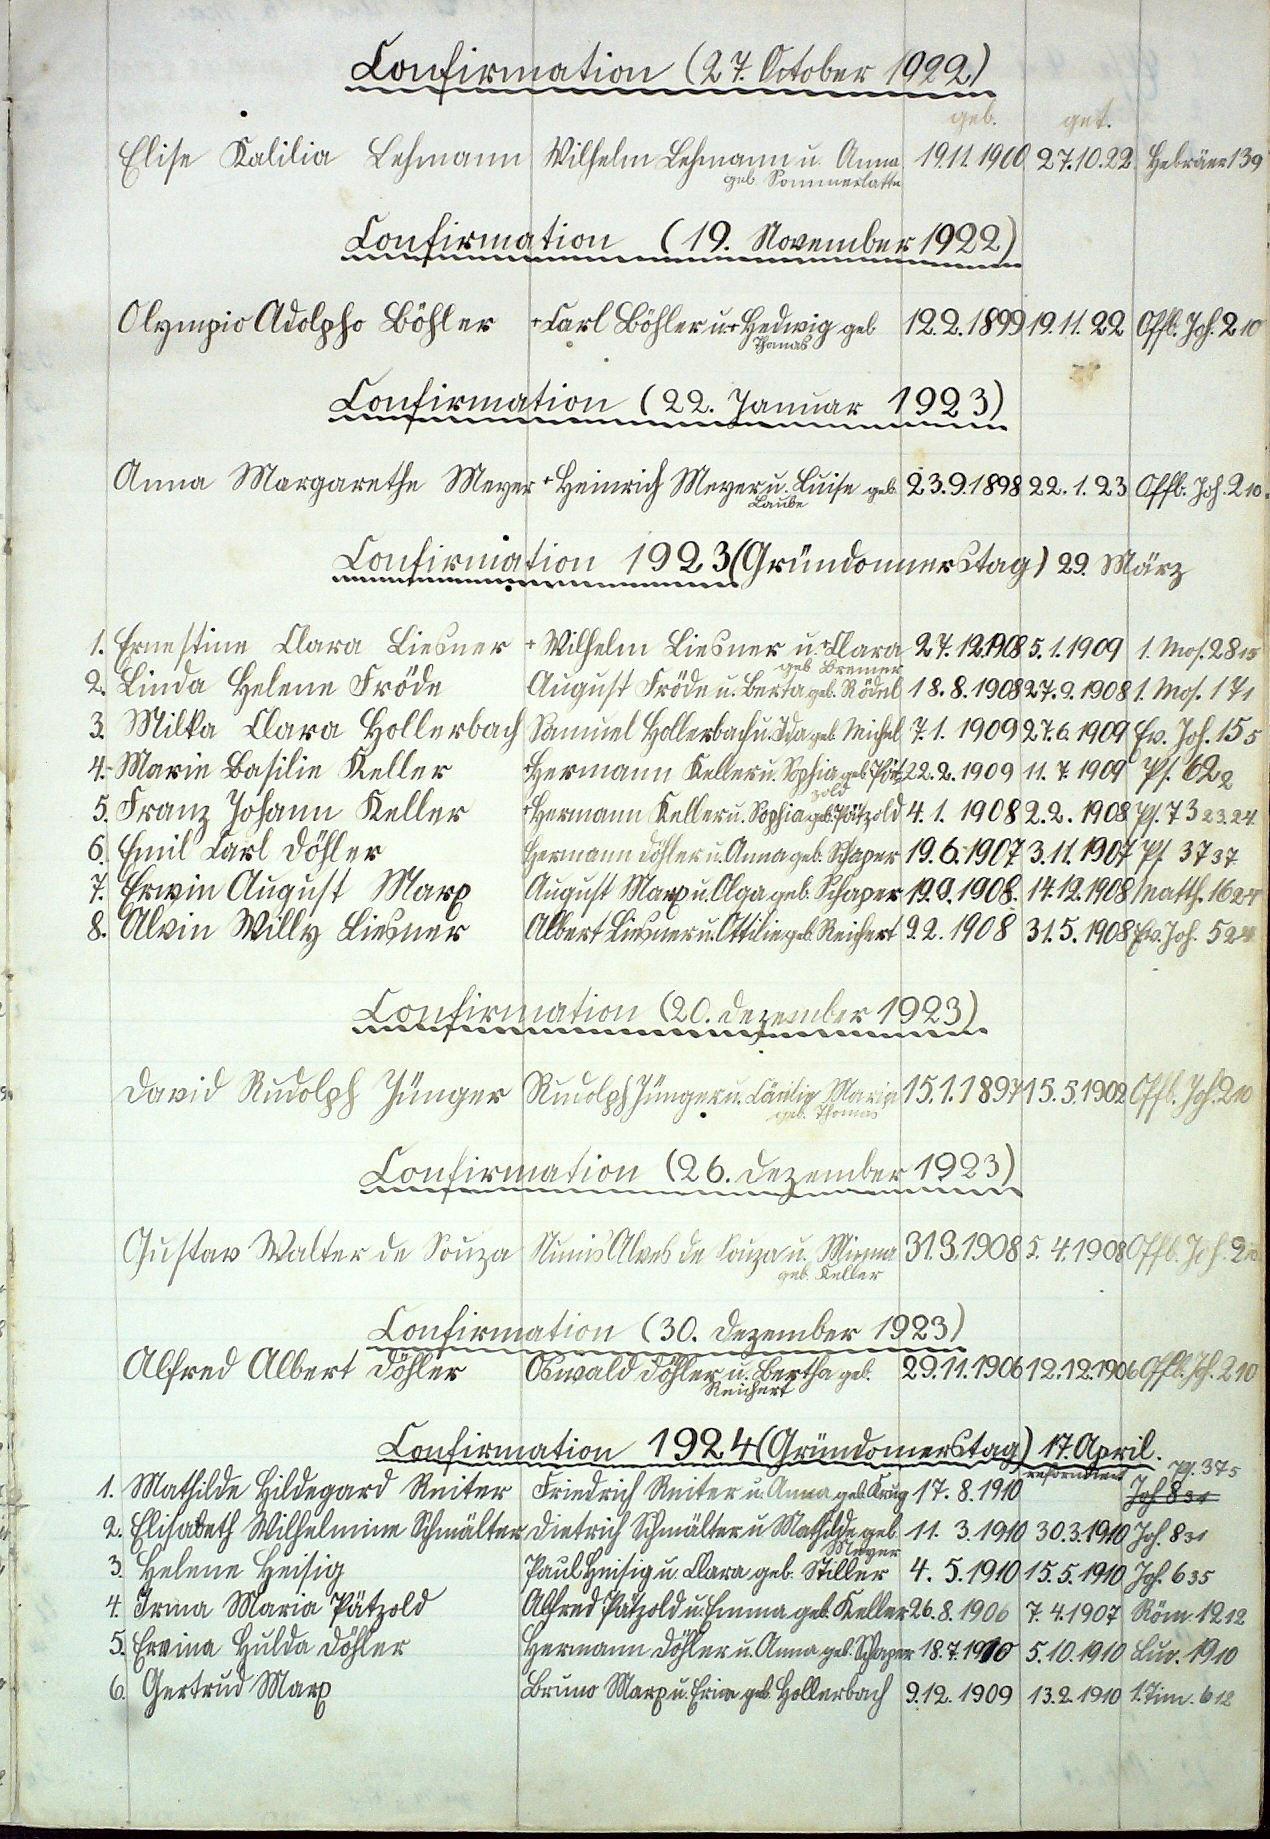 Confirmation (27. October 1922)
geb. get.
Elise Kalilia Lehmann Wilhelm Lehmann u. Anna 19.11.1900 27.10.22 Hebräer 13 9
geb. Sommerlatte
Confirmation (19. November 1922)
Olympio Adolpho Böhler + Carl Böhler u. + Hedwig geb 12.2.1899 19.11.22 Offb. Joh. 2 10
Thomas
Confirmation (22. Januar 1923)
Anna Margarethe Meyer + Heinrich Meyer u. Luise geb. 23.9.1898 22.1.23 Offb. Joh. 2 10.
Laube
Confirmation 1923 (Gründonnerstag) 29. März
1. Ernestine Clara Liesner + Wilhelm Liesner u. + Clara 27.12.1908 5.1.1909 1. Mos. 28 15
geb Bremer
2. Linda Helene Fröde August Fröde u. Berta geb. Rödel 18.8.1908 27.9.1908 1. Mos. 17 1
3. Milka Clara Hollerbach Samuel Hollerbach u. Ida geb. Michel 7.1.1909 27.6.1909 Ev. Joh. 15 5
4. Marie Basilie Keller + Hermann Keller u. Sophia geb. Pät- 22.2.1909 11.7.1909 Ps. 62 2
zold
5. Franz Johann Keller + Hermann Keller u. Sophia geb. Pätzold 4.1.1908 2.2.1908 Ps. 73 23.24.
6. Emil Carl Döhler Hermann Döhler u. Anna geb. Schaper 19.6.1907 3.11.1907 Ps 37 37
7. Erwin August Marx August Marx u. Olga geb. Schaper 19.9.1908. 14.12.1908 Matth. 16 24
8. Alvin Willy Liesner Albert Liesner u. Ottilie geb. Reichert 9.2.1908 31.5.1908 Ev. Joh. 5 24
Confirmation (20. Dezember 1923)
David Rudolph Jünger Rudolph Jünger u. Cäcilie Maria 15.1.1897 15.5.1902 Offb. Joh. 2 10
geb. Thomas
Confirmation (26. Dezember 1923)
Gustav Walter de Souza Nunis Alves de Souza u. Minna 31.3.1908 5.4.1908 Offb. Joh. 2 10
geb. Keller
Confirmation (30. Dezember 1923)
Alfred Albert Döhler Oswald Döhler u. Bertha geb. 29.11.1906 12.12.1906 Offb. Joh. 2 10
Reichert
Confirmation 1924 (Gründonnerstag) 17. April.
reformiert Ps. 37 5
1. Mathilde Hildegard Reiter Friedrich Reiter u. Anna geb. Krug 17.8.1910 Joh 8 31
2. Elisabeth Wilhelmine Schmälter Dietrich Schmälter u Mathilde geb. 11.3.1910 30.3.1910 Joh. 8 31
Meyer
3. Helene Heisig Paul Heisig u. Clara geb. Stiller 4.5.1910 15.5.1910 Joh. 6 35
4. Irma Maria Pätzold Alfred Pätzold u. Emma geb. Keller 26.8.1906 7.4.1907 Röm. 12 12
5. Ervina Hulda Döhler Hermann Döhler u. Anna geb. Schaper 18.7.1910 5.10.1910 Luc. 19 10
6. Gertrud Marx Bruno Marx u. geb. Hollerbach 9.12.1909 13.2.1910 1. Tim. 6 12